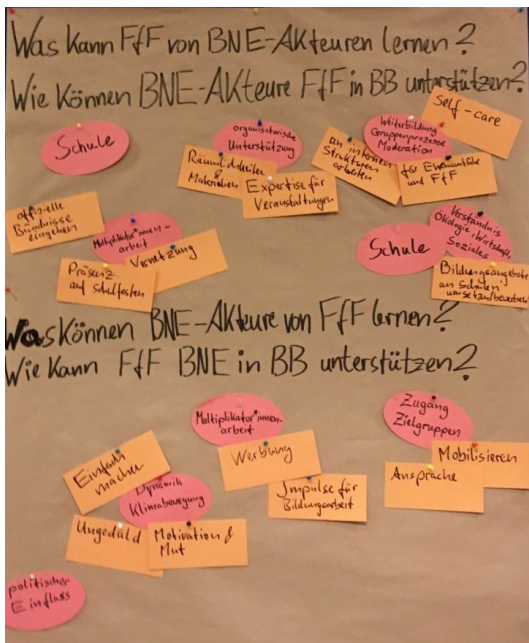 Was kann FfF von BNE-Akteuren lernen?
Wie können BNE-Akteure FfF in BB unterstützen?
Self-care
Schule
organisatorische
Unterstützung
Weiterbildung
Gruppenprozesse
Moderation
Räumlichkeiten
&
Materialien
Expertise für
Veranstaltungen
an internen
Strukturen
arbeiten
für Ehrenamtliche
und FfF
offizielle
Bündnisse
eingehen
Multiplikator*innen-
arbeit
Vernetzung
Präsenz
auf Schulfesten
Schule
Verständnis
Ökologie, Wirtschaft,
Soziales
Bildungsangebote
an Schulen
Was können BNE-Akteure von FfF lernen?
Wie kann FfF BNE in BB unterstützen?
Multiplikator*innen-
arbeit
Zugang
Zielgruppen
Einfach
machen
Werbung
Mobilisieren
Ansprache
Dynamik
Klimabewegung
Impulse für
Bildungsarbeit
Ungeduld
Motivation &
Mut
politischer
Einfluss